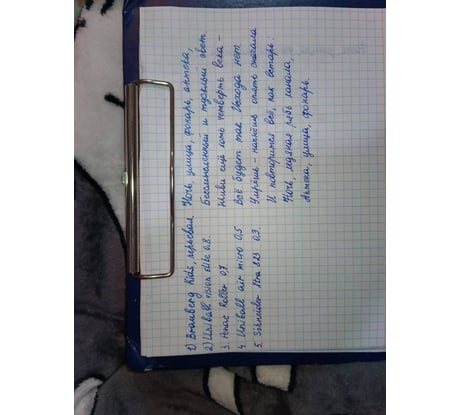 1) Brauberg Kids, перьевая Ночь, улица, фонарь, аптека,
2) Uniball vision elite 0.8. Бессмысленный и тусклый свет.
3. Roller 0.7 Живи ещё хоть четверть века -
4. Uniball air micro 0.5 Всё будет так. Исхода нет.
5. Schneider Xtra 823 0.3. Умрёшь - начнёшь опять сначала
И повторится всё, как встарь:
Ночь, ледяная рябь канала,
Аптека, улица, фонарь.